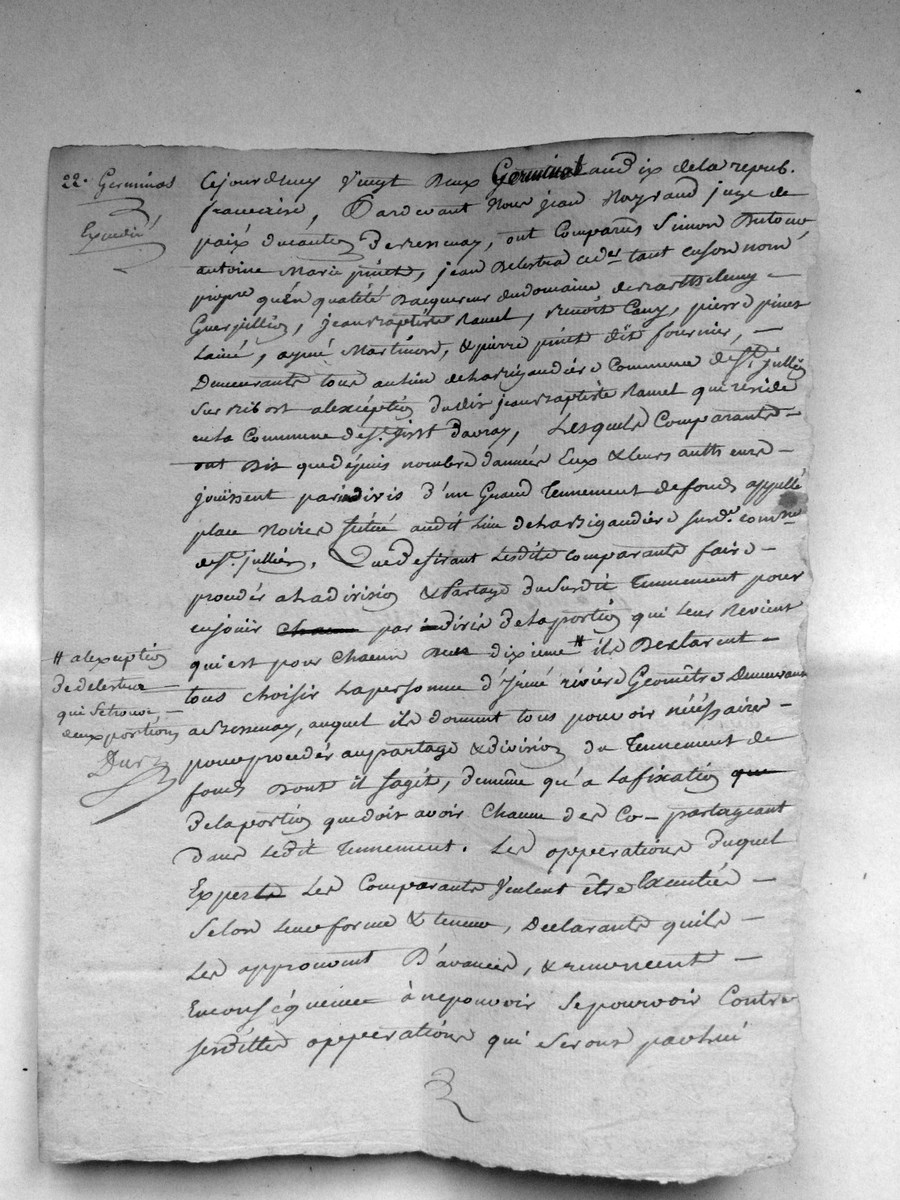 22. Germinal
Expedié
Cejourdhuy vingt Deux Germinal an dix dela repub.
francaise, Pardevant Nous jean Noyrand juge de
paix ducanton Deressenay, ont Comparus Simon Dutour
antoine Marie pinet, jean Delestra cedes tant enson nom
propre qu'en qualité Dacquereur dudomaine debarthelemy
Guerpillion, jeanBaptiste Ramel, Benoît Cany, pierre pinet
Lainé, aymé Martinon, & pierre pinet dit fournier, —
Demeurants tous aulieu delaRigaudière Commune deSt. jullien
Sur Bibost alexception dudit jeanBaptiste Ramel qui reside
enla Commune deSt. Davray, Lesquels Comparants —
ont Dit quedepuis nombre dannées Eux & leurs autheurs —
jouissent parindivis d'un Grand Tennement defonds appellé
place Noire Situé audit Lieu delaRigaudière surde. comune
deSt. jullien, QueDesirant lesdits comparants faire —
procéder aladivision & Partage duSurdit Tennement pour
enjouir par divis delaportion qui leur Revient
qui est pour chacun Un dixieme # ils Declarent —
tous choisir lapersonne d'Irené rivière Geomètre Demeurant
aBessenay, auquel ils donnent tous pouvoir nécéssaire —
pour procéder aupartage & division du Tennement de
fonds Dont il Sagit, demême qu'a lafixation que
Delaportion quedoit avoir Chacun des Co-partageant
dans Ledit Tennement. Les opperations duquel
Expert Les Comparants Veulent être Executées —
Selon Leur forme & teneur, Declarants quils —
Les approuvent D'avance, & renoncent —
Enconséquence à nepouvoir Sepourvoir Contre
lesdittes opperations qui Seront
# alexception
De delestra
qui Setrouve —
deux portions